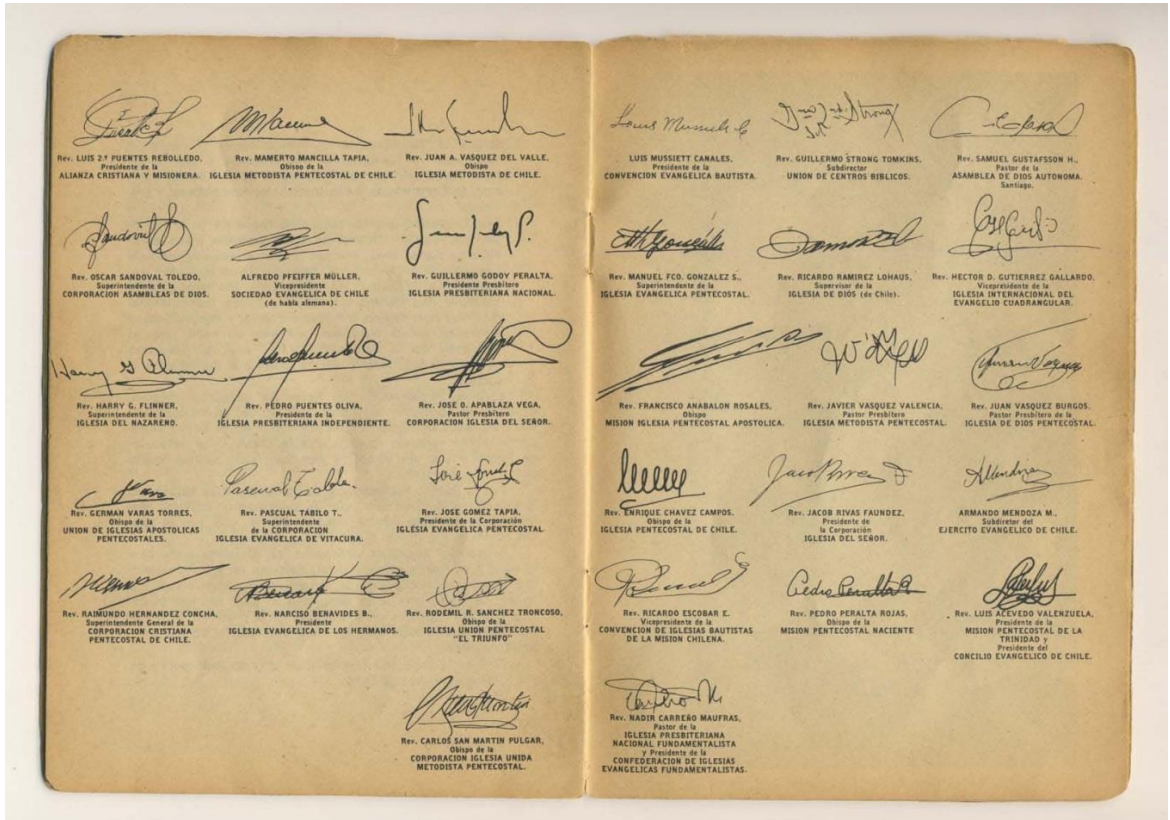 Rev. LUIS 2.º PUENTES REBOLLEDO,
Presidente de la
ALIANZA CRISTIANA Y MISIONERA.
Rev. MAMERTO MANCILLA TAPIA,
Obispo de la
IGLESIA METODISTA PENTECOSTAL DE CHILE.
Rev. JUAN A. VASQUEZ DEL VALLE,
Obispo
IGLESIA METODISTA DE CHILE.
Rev. OSCAR SANDOVAL TOLEDO,
Superintendente de la
CORPORACION ASAMBLEAS DE DIOS.
ALFREDO PFEIFFER MÜLLER,
Vicepresidente
SOCIEDAD EVANGELICA DE CHILE
(de habla alemana).
Rev. GUILLERMO GODOY PERALTA,
Presidente Presbítero
IGLESIA PRESBITERIANA NACIONAL.
Harry G Flinner
Rev. HARRY G. FLINNER,
Superintendente de la
IGLESIA DEL NAZARENO.
Rev. PEDRO PUENTES OLIVA,
Presidente de la
IGLESIA PRESBITERIANA INDEPENDIENTE.
Rev. JOSE O. APABLAZA VEGA,
Pastor Presbítero
CORPORACION IGLESIA DEL SEÑOR.
Rev. GERMAN VARAS TORRES,
Obispo de la
UNION DE IGLESIAS APOSTOLICAS
PENTECOSTALES.
Rev. PASCUAL TABILO T.,
Superintendente
de la CORPORACION
IGLESIA EVANGELICA DE VITACURA.
Rev. JOSE GOMEZ TAPIA,
Presidente de la Corporación
IGLESIA EVANGELICA PENTECOSTAL
Rev. RAIMUNDO HERNANDEZ CONCHA,
Superintendente General de la
CORPORACION CRISTIANA
PENTECOSTAL DE CHILE.
Rev. NARCISO BENAVIDES B.,
Presidente
IGLESIA EVANGELICA DE LOS HERMANOS.
Rev. RODEMIL R. SANCHEZ TRONCOSO,
Obispo de la
IGLESIA UNION PENTECOSTAL
"EL TRIUNFO"
Rev. CARLOS SAN MARTIN PULGAR,
Obispo de la
CORPORACION IGLESIA UNIDA
METODISTA PENTECOSTAL.
LUIS MUSSIETT CANALES,
Presidente de la
CONVENCION EVANGELICA BAUTISTA.
Rev. GUILLERMO STRONG TOMKINS,
Subdirector
UNION DE CENTROS BIBLICOS.
Rev. SAMUEL GUSTAFSSON H.,
Pastor de la
ASAMBLEA DE DIOS AUTONOMA.
Santiago.
Rev. MANUEL FCO. GONZALEZ S.,
Superintendente de la
IGLESIA EVANGELICA PENTECOSTAL.
Rev. RICARDO RAMIREZ LOHAUS,
Supervisor de la
IGLESIA DE DIOS (de Chile).
Rev. HECTOR D. GUTIERREZ GALLARDO,
Vicepresidente de la
IGLESIA INTERNACIONAL DEL
EVANGELIO CUADRANGULAR.
Rev. FRANCISCO ANABALON ROSALES,
Obispo
MISION IGLESIA PENTECOSTAL APOSTOLICA.
Rev. JAVIER VASQUEZ VALENCIA,
Pastor Presbítero
IGLESIA METODISTA PENTECOSTAL.
Rev. JUAN VASQUEZ BURGOS,
Pastor Presbítero de la
IGLESIA DE DIOS PENTECOSTAL.
Rev. ENRIQUE CHAVEZ CAMPOS,
Obispo de la
IGLESIA PENTECOSTAL DE CHILE.
Rev. JACOB RIVAS FAUNDEZ,
Presidente de
la Corporación
IGLESIA DEL SEÑOR.
ARMANDO MENDOZA M.,
Subdiretor del
EJERCITO EVANGELICO DE CHILE.
Rev. RICARDO ESCOBAR E.
Vicepresidente de la
CONVENCION DE IGLESIAS BAUTISTAS
DE LA MISION CHILENA.
Rev. PEDRO PERALTA ROJAS,
Obispo de la
MISION PENTECOSTAL NACIENTE
Rev. LUIS ACEVEDO VALENZUELA,
Presidente de la
MISION PENTECOSTAL DE LA
TRINIDAD y
Presidente del
CONCILIO EVANGELICO DE CHILE.
Rev. NADIR CARREÑO MAUFRAS,
Pastor de la
IGLESIA PRESBITERIANA
NACIONAL FUNDAMENTALISTA
y Presidente de la
CONFEDERACION DE IGLESIAS
EVANGELICAS FUNDAMENTALISTAS.